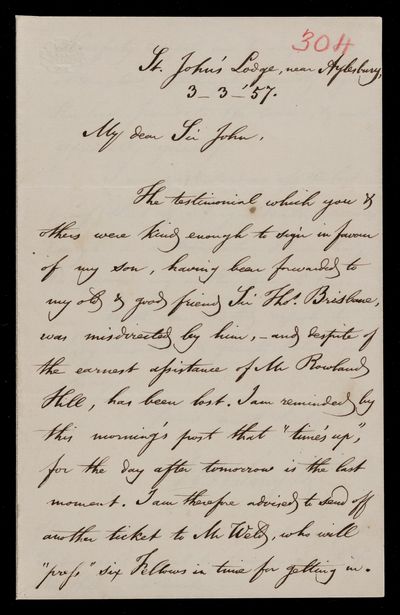 304
St. John's Lodge, near Aylesbury,
3_3_'57.
My dear Sir John,
The testimonial which you &
others were kind enough to sign in favour
of my son, having been forwarded to
my old & good friend Sir Thos. Brisbane,
was misdirected by him, - and despite of
the earnest assistance of Mr Rowland
Hill, has been lost. I am reminded by
this morning's post that "time's up",
for the day after tomorrow is the last
moment. I am therefore advised to send off
another ticket to Mr Weld, who will
"press" six Fellows in time for getting in.